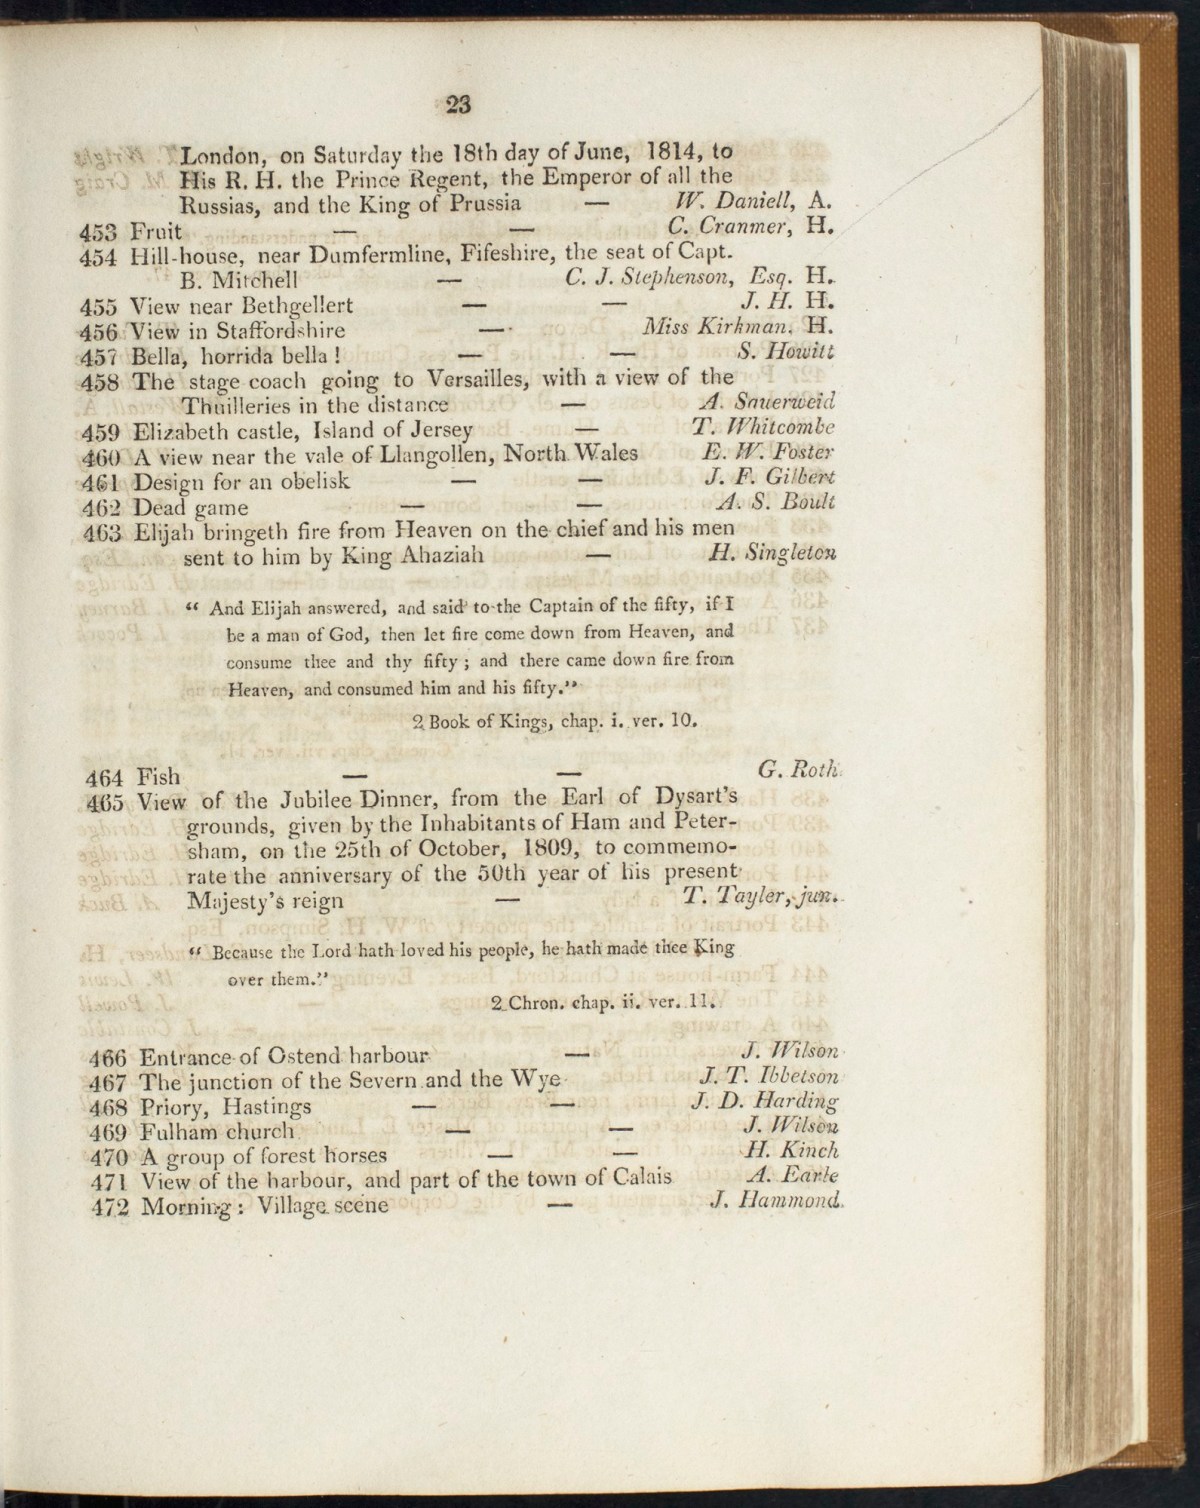 23
London, on Saturday the 18th day of June, 1814, to
His R. H. the Prince Regent, the Emperor of all the
Russias, and the King of Prussia — W. Daniell, A.
453 Fruit — — C. Cranmer, H.
454 Hill-house, near Dumfermline, Fifeshire, the seat of Capt.
B. Mitchell — C. J. Stephenson, Esq. H.
455 View near Bethgellert — — J. H. H.
456 View in Staffordshire — Miss Kirkman. H.
457 Bella, horrida bella ! — — S. Howitt
458 The stage coach going to Versailles, with a view of the
Thuilleries in the distance — A. Sauerweid
459 Elizabeth castle, Island of Jersey — T. Whitcombe
460 A view near the vale of Llangollen, North Wales E. W. Foster
461 Design for an obelisk — — J. F. Gilbert
462 Dead game — — A. S. Boult
463 Elijah bringeth fire from Heaven on the chief and his men
sent to him by King Ahaziah — H. Singleton
“ And Elijah answered, and said to the Captain of the fifty, if I
be a man of God, then let fire come down from Heaven, and
consume thee and thy fifty ; and there came down fire from
Heaven, and consumed him and his fifty.”
2 Book of Kings, chap. i. ver. 10.
464 Fish — — G. Roth
465 View of the Jubilee Dinner, from the Earl of Dysart’s
grounds, given by the Inhabitants of Ham and Peter-
sham, on the 25th of October, 1809, to commemo-
rate the anniversary of the 50th year of his present
Majesty’s reign — T. Tayler, jun.
“ Because the Lord hath loved his people, he hath made thee King
over them.”
2 Chron. chap. ii. ver. 11.
466 Entrance of Ostend harbour — J. Wilson
467 The junction of the Severn and the Wye J. T. Ibbetson
468 Priory, Hastings — — J. D. Harding
469 Fulham church — — J. Wilson
470 A group of forest horses — — H. Kinch
471 View of the harbour, and part of the town of Calais A. Earle
472 Morning : Village scene — J. Hammond.